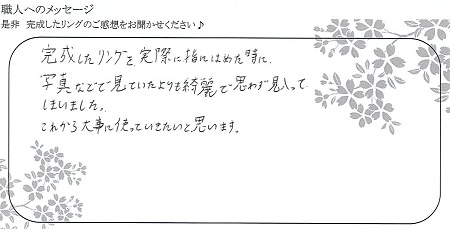 職人へのメッセージ
是非 完成したリングのご感想をお聞かせください♪
完成したリングを実際に指にはめた時に、
写真などで見ていたよりも綺麗で思わず見入って
しまいました。
これから大事に使っていきたいと思います。